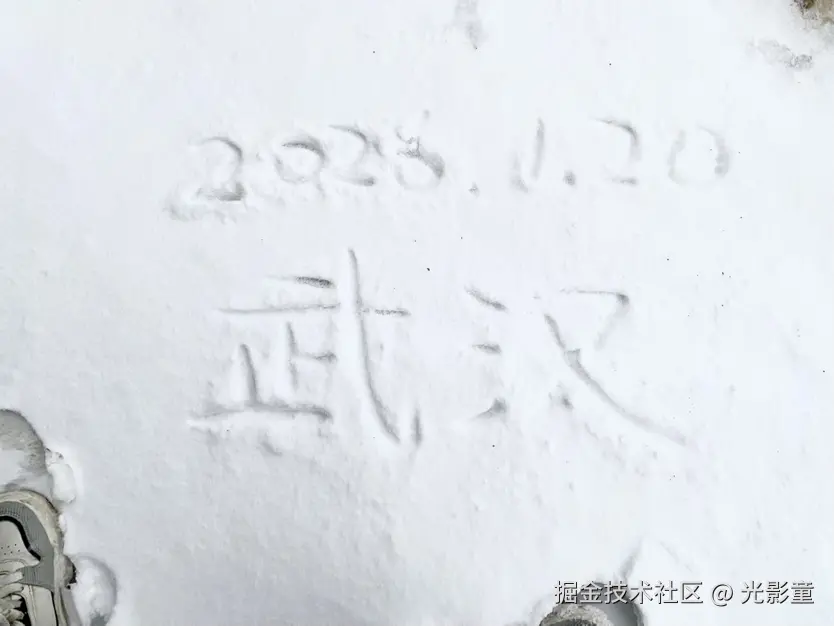 2026.1.20
武汉
掘金技术社区 @ 光影童